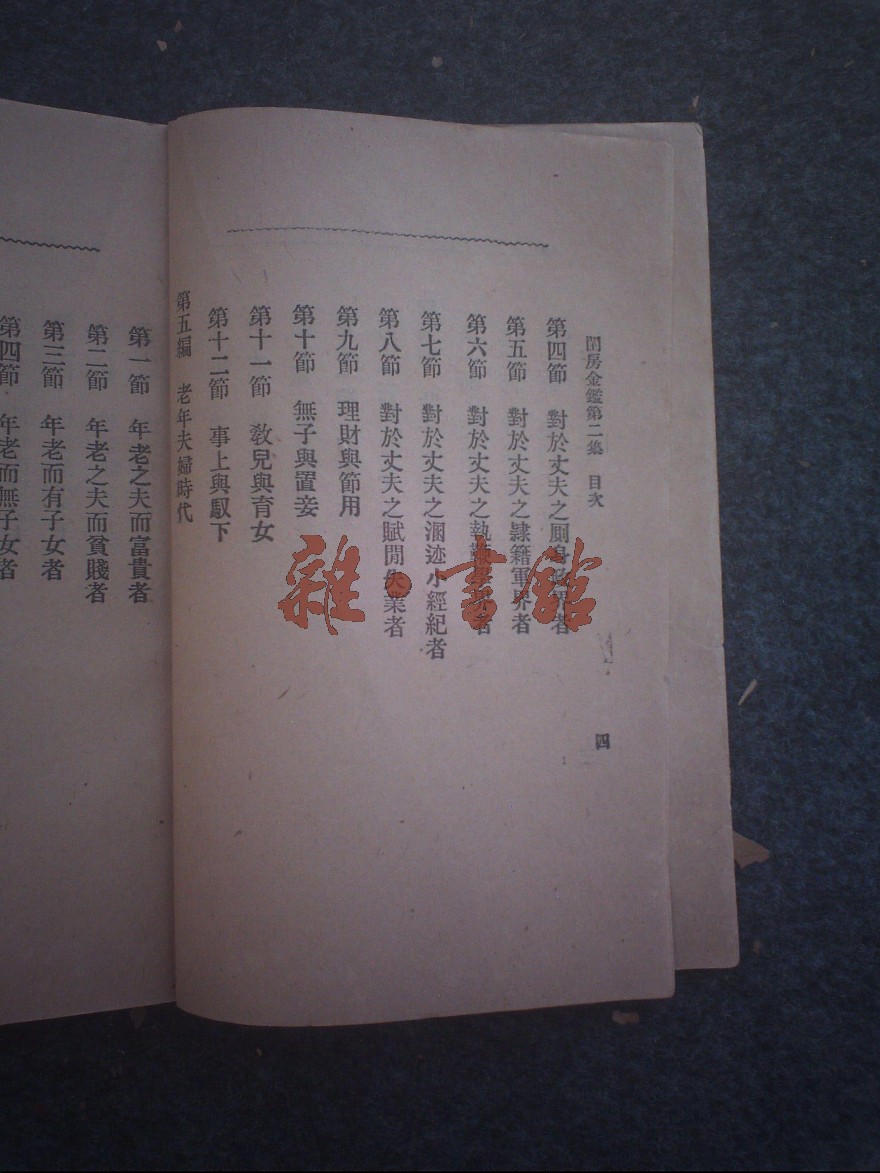 閨房金鑑第二集 目次
四
第四節 對於丈夫之厠身政界者
第五節 對於丈夫之隷籍軍界者
第六節 對於丈夫之執鞭學界者
第七節 對於丈夫之溷迹小經紀者
第八節 對於丈夫之賦閒失業者
第九節 理財與節用
第十節 無子與置妾
第十一節 敎兒與育女
第十二節 事上與馭下
第五編 老年夫婦時代
第一節 年老之夫而富貴者
第二節 年老之夫而貧賤者
第三節 年老而有子女者
第四節 年老而無子女者
雜·書館